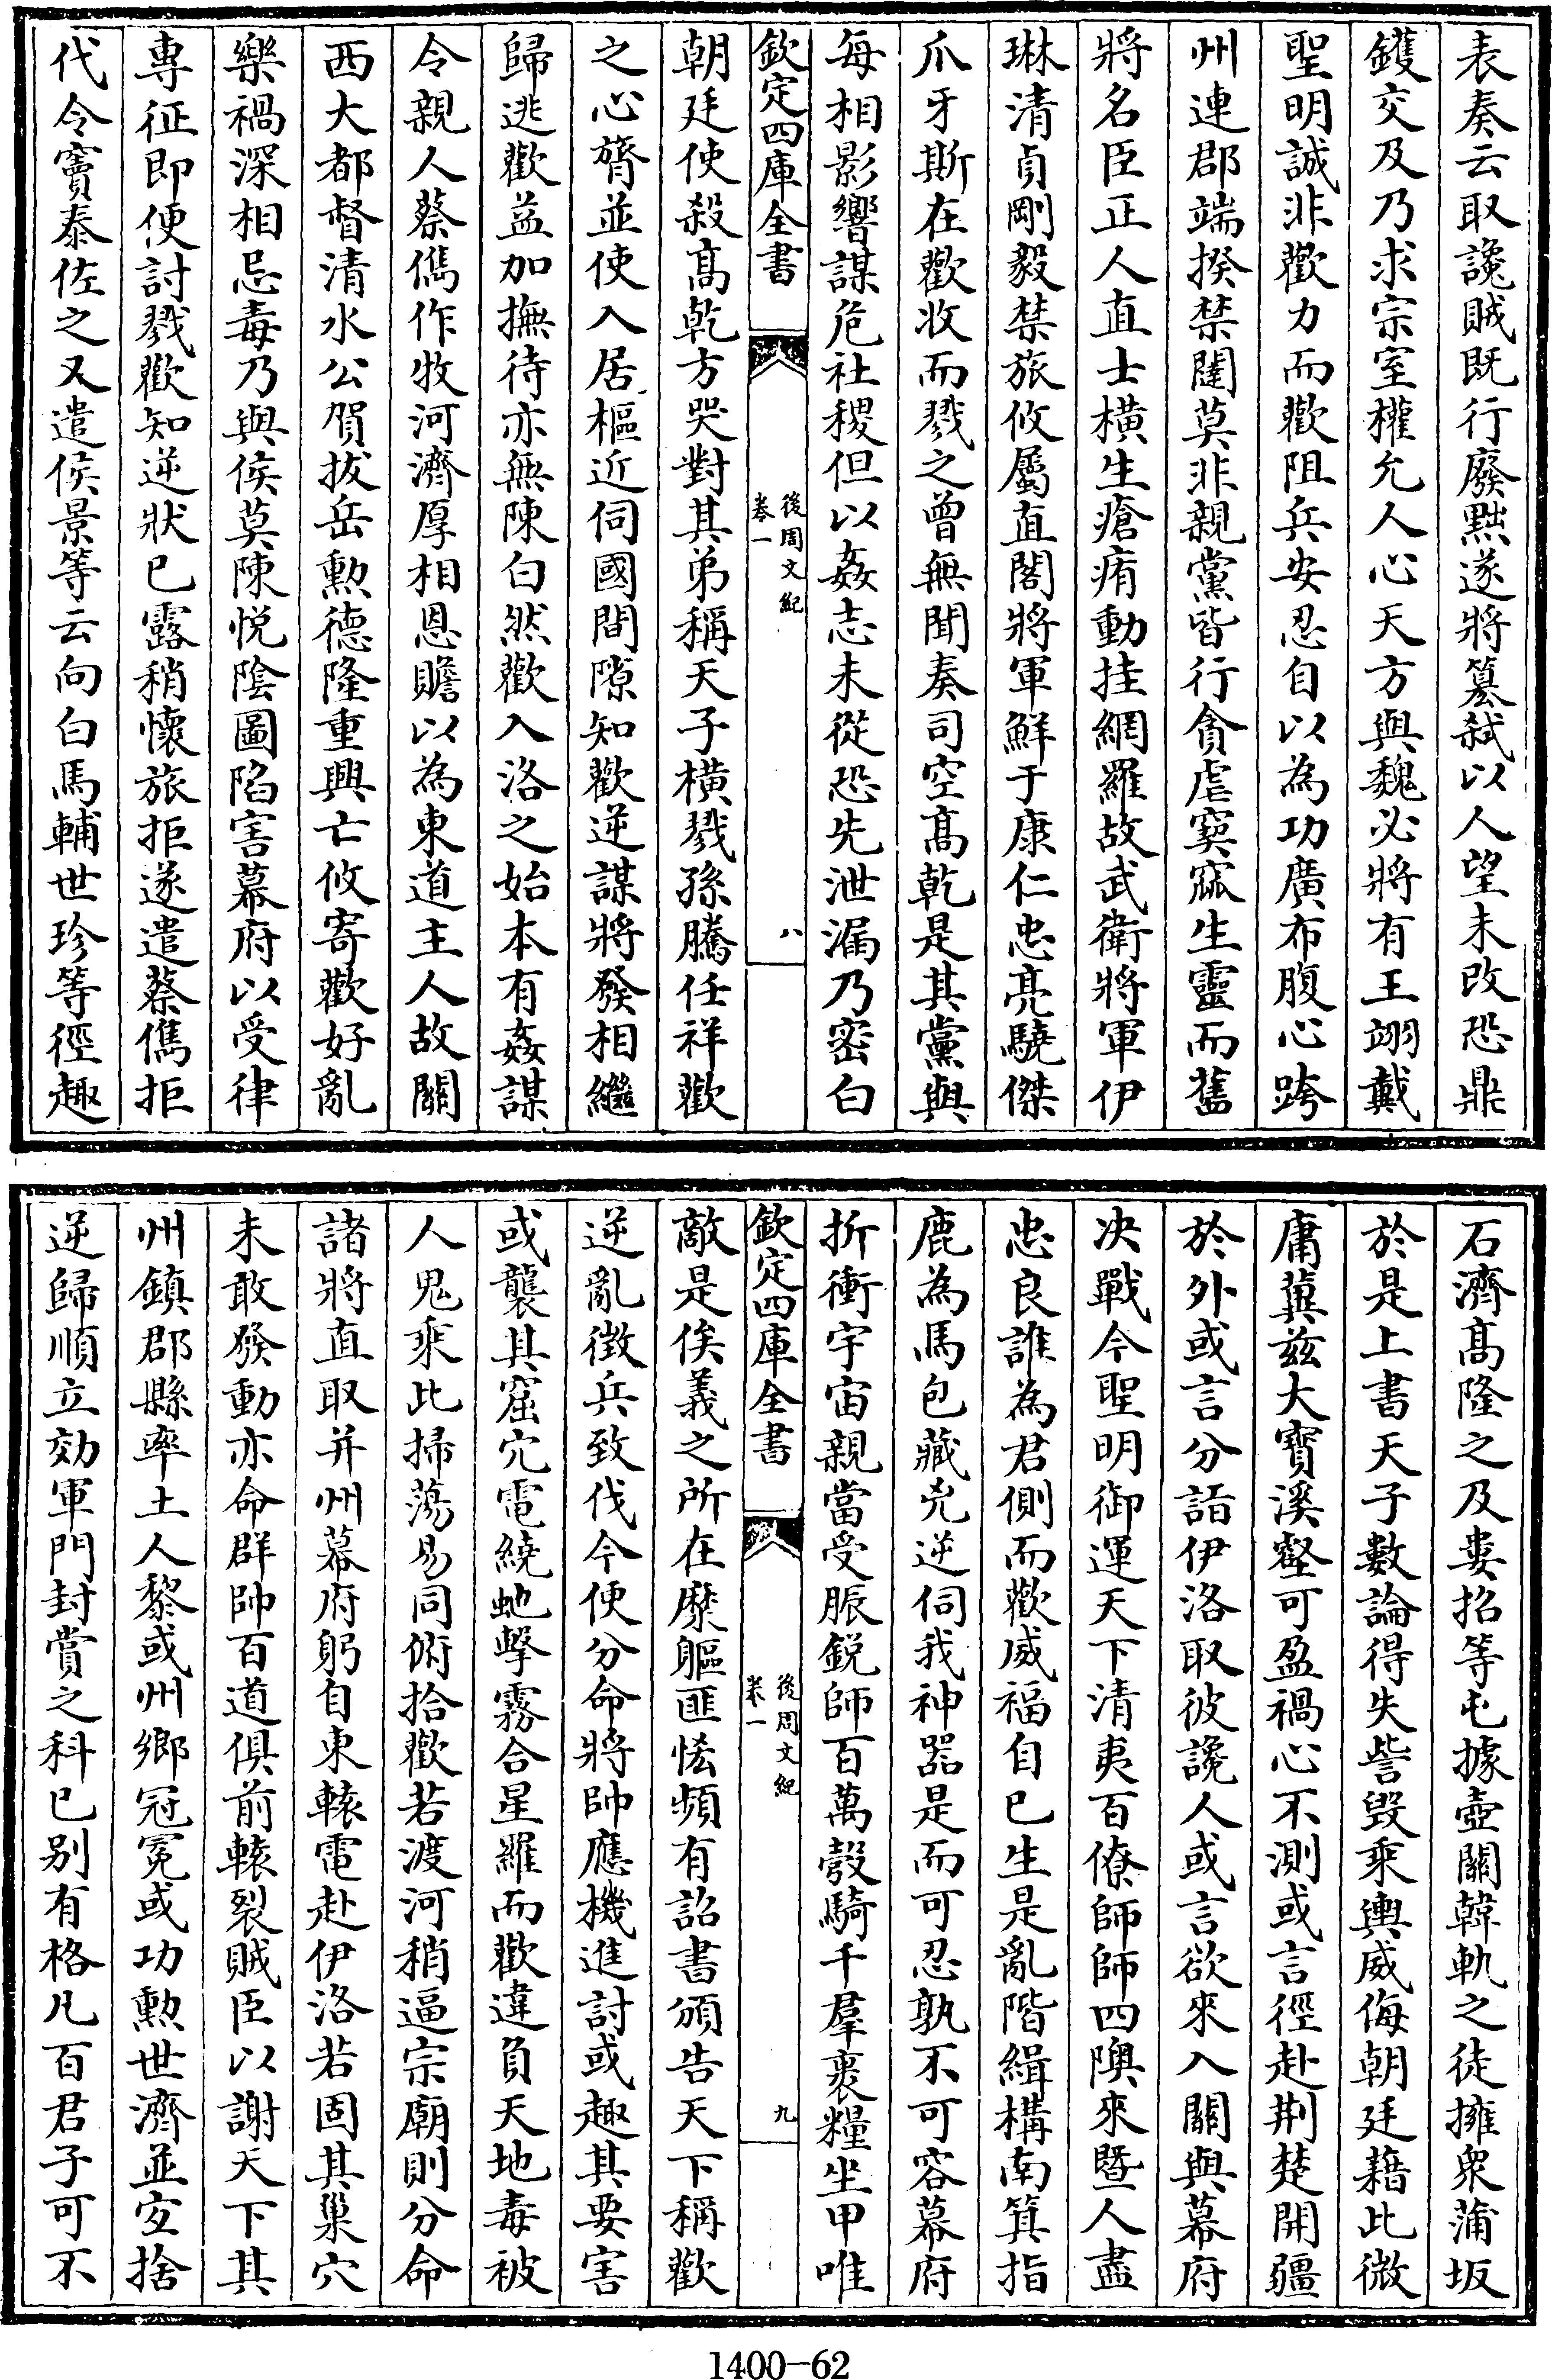 表奏云取讒賊既行廢黜遂將篡弑以人望未改恐鼎
鑊交及乃求宗室權允人心天方與魏必將有主翊戴
聖明誠非歡力而歡阻兵安忍自以為功廣布腹心跨
州連郡端揆禁闥莫非親黨皆行貪虐窫窳生靈而舊
將名臣正人直士橫生瘡痏動挂網羅故武衛將軍伊
琳清貞剛毅禁旅攸屬直閣將軍鮮于康仁忠亮驍傑
爪牙斯在歡收而戮之曾無聞奏司空髙乾是其黨與
每相影響謀危社稷但以姦志未從恐先泄漏乃密白
欽定四庫全書
後周文紀
卷一
八
朝廷使殺髙乾方哭對其弟稱天子橫戮孫騰任祥歡
之心膂並使入居樞近伺國間隙知歡逆謀將發相繼
歸逃歡益加撫待亦無陳白然歡入洛之始本有姦謀
令親人蔡儁作牧河濟厚相恩贍以為東道主人故關
西大都督清水公賀拔岳勲德隆重興亡攸寄歡好亂
樂禍深相忌毒乃與侯莫陳悅陰圖陷害幕府以受律
專征即便討戮歡知逆狀已露稍懷旅拒遂遣蔡儁拒
代令竇泰佐之又遣侯景等云向白馬輔世珍等徑趣
石濟髙隆之及婁招等屯據壺關韓軌之徒擁衆蒲坂
於是上書天子數論得失訾毀乘輿威侮朝廷藉此微
庸冀兹大寳溪壑可盈禍心不測或言徑赴荆楚開疆
於外或言分詣伊洛取彼讒人或言欲來入關與幕府
决戰今聖明御運天下清夷百僚師師四隩來暨人盡
忠良誰為君側而歡威福自已生是亂階緝構南箕指
鹿為馬包藏兇逆伺我神器是而可忍孰不可容幕府
折衝宇宙親當受脤鋭師百萬彀騎千羣裹糧坐甲唯
欽定四庫全書
後周文紀
卷一
九
敵是俟義之所在縻軀匪恡頻有詔書頒告天下稱歡
逆亂徴兵致伐今便分命將帥應機進討或趣其要害
或襲其窟穴電繞虵擊霧合星羅而歡違負天地毒被
人鬼乘此掃蕩易同俯拾歡若渡河稍逼宗廟則分命
諸將直取并州幕府躬自東轅電赴伊洛若固其巢穴
未敢發動亦命群帥百道俱前轅裂賊臣以謝天下其
州鎮郡縣率土人黎或州鄉冠冕或功勲世濟並宜捨
逆歸順立効軍門封賞之科已别有格凡百君子可不
1400-62